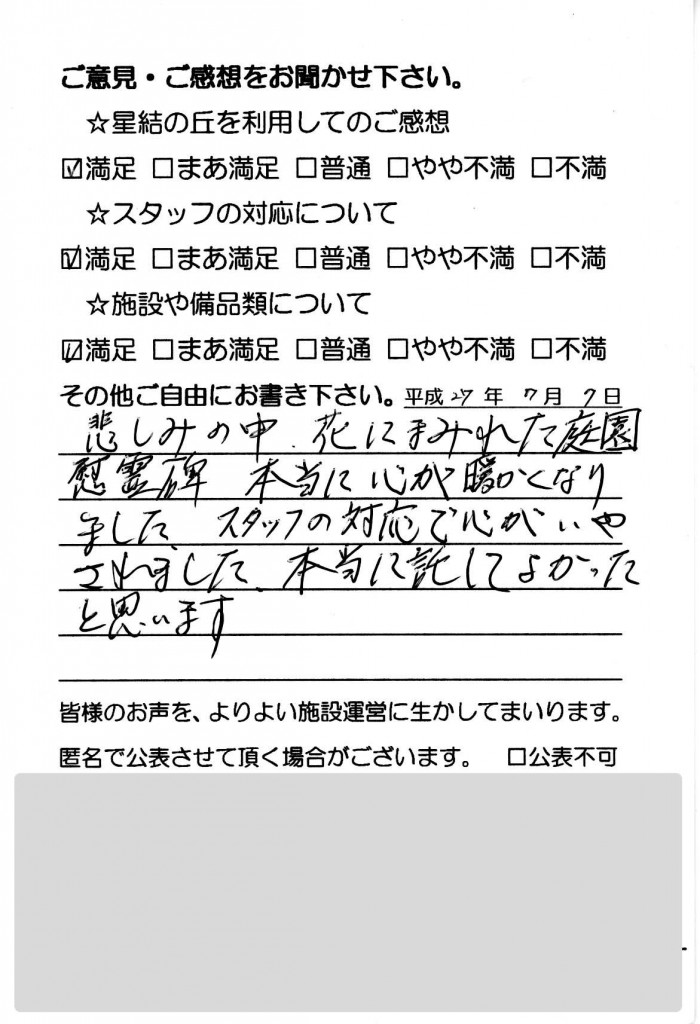 ご意見・ご感想をお聞かせ下さい。
☆星結の丘を利用してのご感想
☑満足 □まあ満足 □普通 □やや不満 □不満
☆スタッフの対応について
☑満足 □まあ満足 □普通 □やや不満 □不満
☆施設や備品類について
☑満足 □まあ満足 □普通 □やや不満 □不満
その他ご自由にお書き下さい。平成27年 7月 9日
悲しみの中、花にまみれた庭園
慰霊碑 本当に心が暖かくなり
ました、スタッフの対応で心がいや
されました、本当に託してよかった
と思います
皆様のお声を、よりよい施設運営に生かしてまいります。
匿名で公表させて頂く場合がございます。 □公表不可